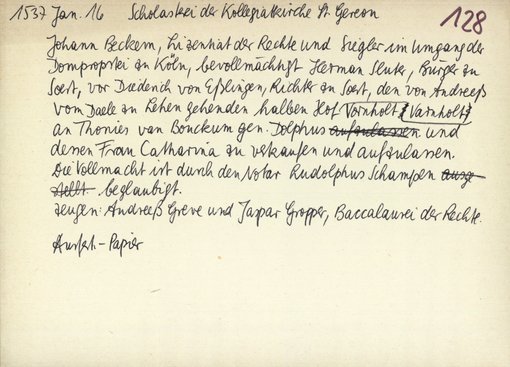 1537 Jan. 16 Scholasterei der Kollegiatkirche St. Gereon
128
Johann Beckem, Lizentiat der Rechte und Siegler im Umgang der
Dompropstei zu Köln, bevollmächtigt Herman Sluter, Bürger zu
Soest, vor Diederich von Eßlingen, Richter zu Soest, den von Andreeß
vom Daele zu Lehen gehenden halben Hof Vornholt { Varnholt }
an Thonies van Bouckum gen. Dolphus aufzulassen und
dessen Frau Catharina zu verkaufen und aufzulassen.
Die Vollmacht ist durch den Notar Rudolphus Schampen ausge-
stellt beglaubigt.
Zeugen: Andreeß Greve und Jaspar Gropper, Baccalaurei der Rechte.
Ausfert.-Papier